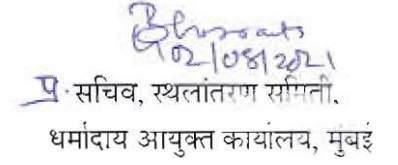 02/08/2021
प्र. सचिव, स्थलांतरण समिती.
धर्मादाय आयुक्त कार्यालय, मुंबई